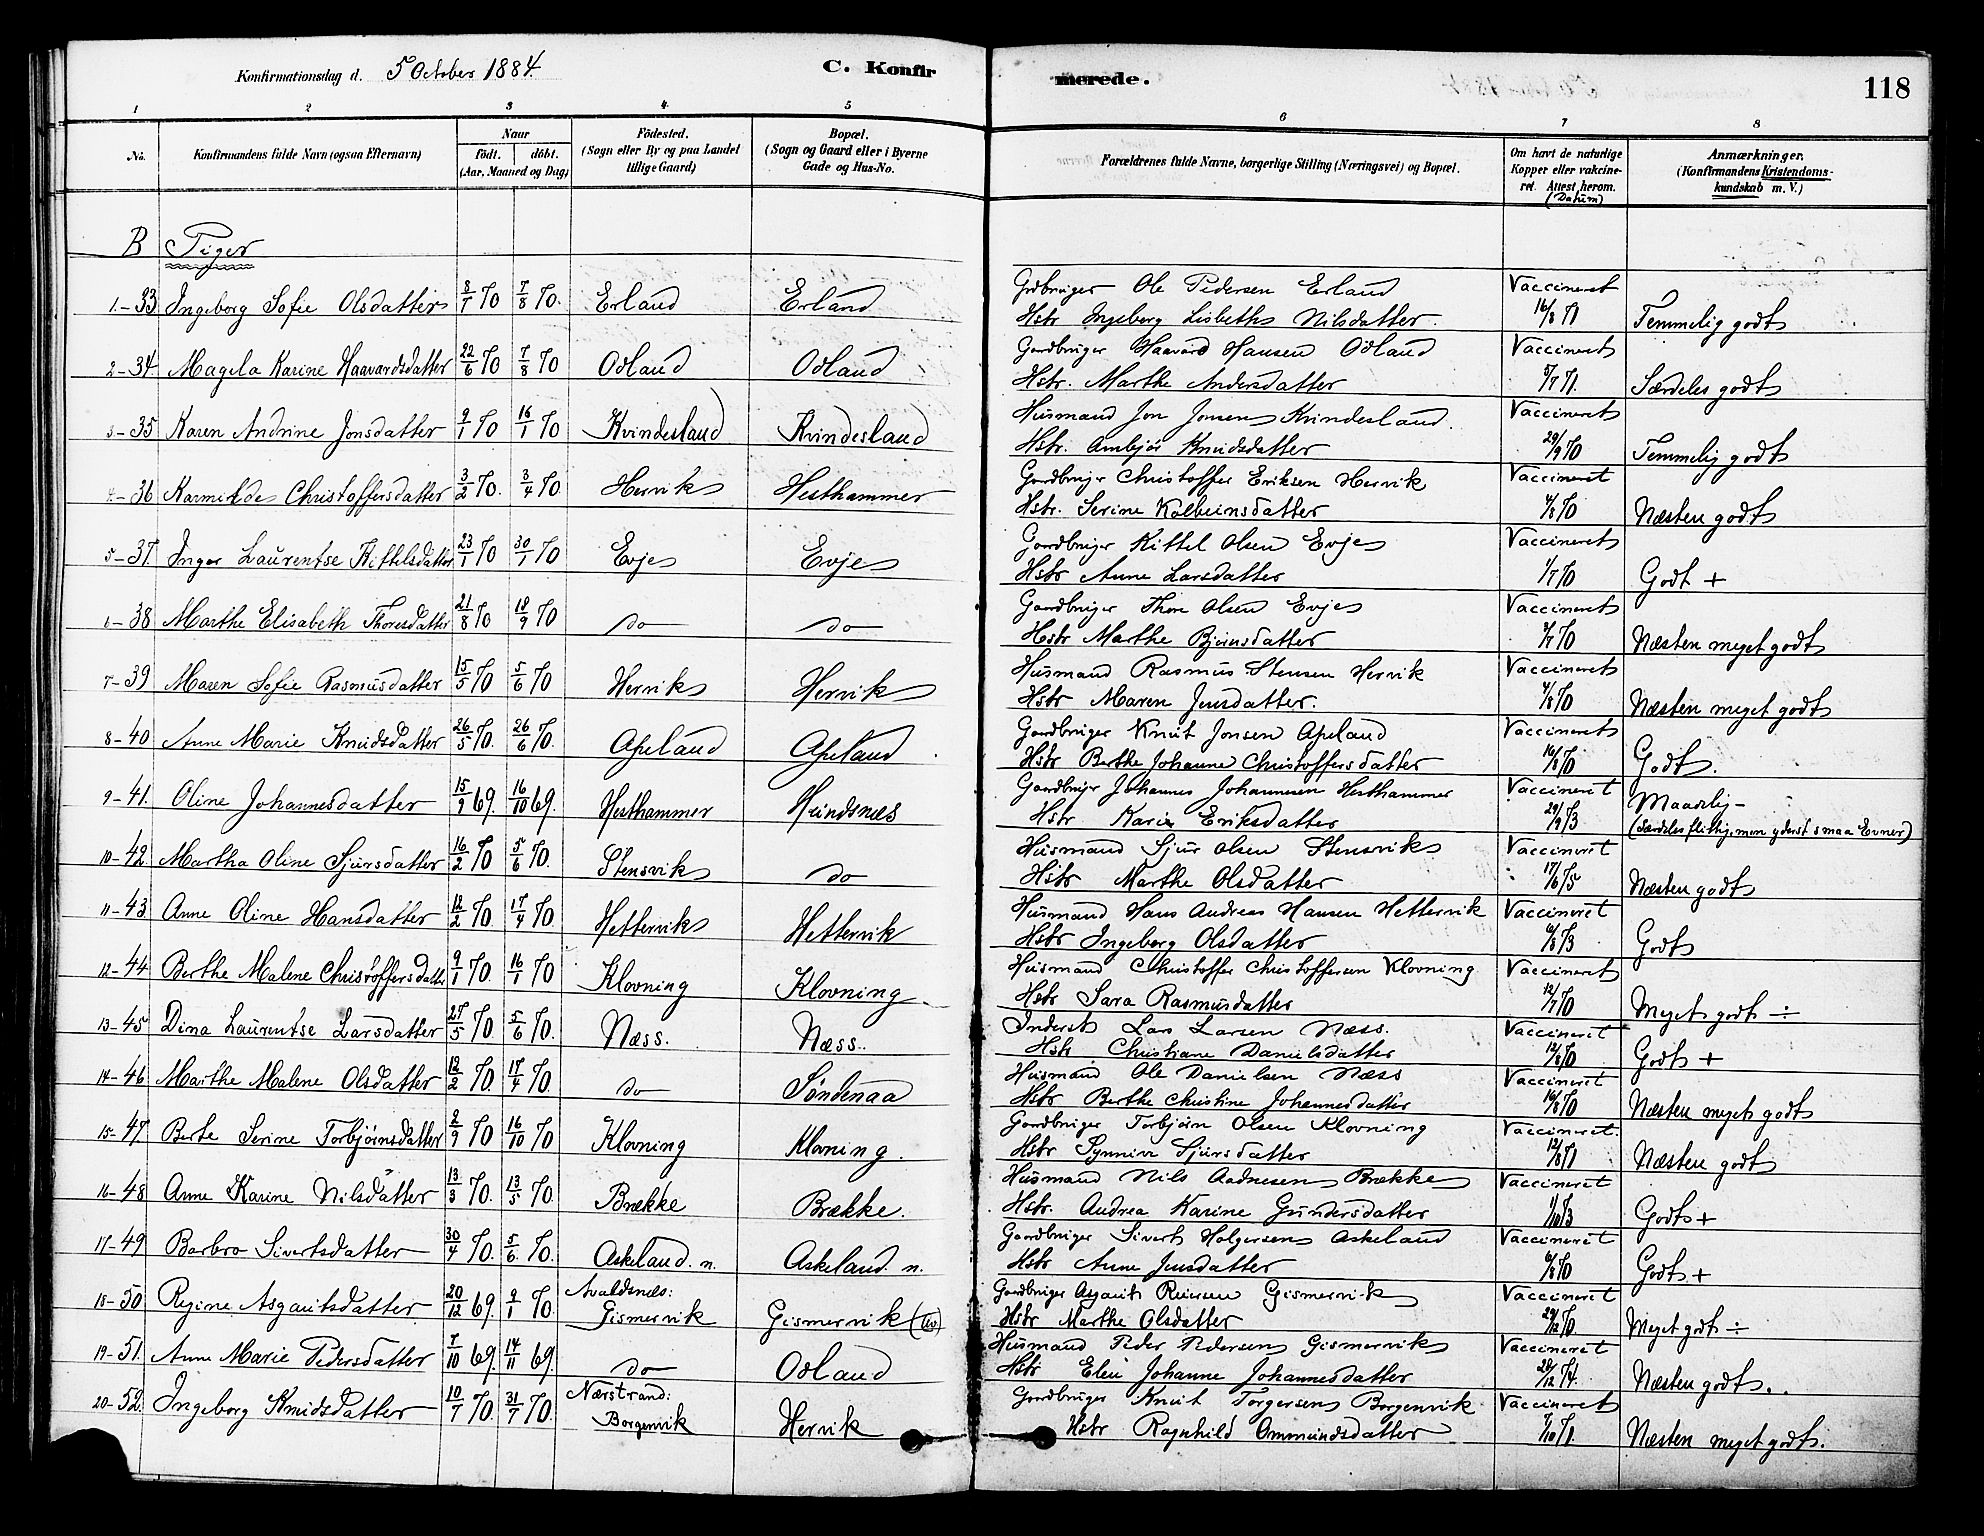 Konfirmationsdag d. 5 October 1884.
C. Konfirmerede.
118
1 2 3 4 5 6 7 8
No.
Konfirmandens fulde Navn (ogsaa Efternavn)
Naar
födt. döbt.
(Aar, Maaned og Dag)
Födested.
(Sogn eller By og paa Landet tillige Gaard)
Bopæl.
(Sogn og Gaard eller i Byerne Gade og Hus-No.
Forældrenes fulde Navne, borgerlige Stilling (Næringsvei) og Bopæl.
Om havt de naturlige Kopper eller vakcineret. Attest herom. (Datum)
Anmærkninger.
(Konfirmandens Kristendomskundskab m. V.)
B Piger
1-33 Ingeborg Sofie Olsdatter 8/7 70 7/8 70. Erland Erland Grdbruger Ole Pedersen Erland Vaccineret
Hstr Ingeborg Lisbeth Nilsdatter. 16/8 71 Temmelig godt
2-34 Magela Karine Haavardsdatter 22/6 70 7/8 70 Odland Odland Gardbruger Haavard Hansen Odland Vaccineret
Hstr. Marthe Andersdatter 5/7 71. Særdeles godt
3-35 Karen Andrine Jonsdatter 9/1 70 16/1 70 Kvindesland Kvindesland Husmand Jon Jonsen Kvindesland. Vaccineret
Hstr. Ambjør Knudsdatter 29/9 70 Temmelig godt
4-36 Karmilde Christoffersdatter 3/2 70. 3/4 70. Hervik Hesthammer Gardbruger Christoffer Eriksen Hervik Vaccineret
Hstr. Serine Kolbeinsdatter 4/8 70 Næsten godt
5-37. Inger Laurentse Kittelsdatter 23/1 70 30/1 70 Evje Evje Gardbruger Kittel Olsen Evje Vaccineret
Hstr Anne Larsdatter 1/7 70 Godt +
6-38 Marthe Elisabeth Thoresdatter 21/8 70 18/9 70 do do Gardbruger Thore Olsen Evje Vaccineret
Hstr Marthe Bjørnsdatter 3/7 70 Næsten meget godt
7-39 Maren Sofie Rasmusdatter 15/5 70 5/6 70 Hervik Hervik Husmand Rasmus Stensen Hervik Vaccineret
Hstr Maren Jensdatter. 4/8 70 Næsten meget godt
8-40 Anne Marie Knudsdatter 26/5 70. 26/6 70. Apeland Apeland Gardbruger Knut Jonsen Apeland Vaccineret
Hstr Berthe Johanne Christoffersdatter 16/8 70 Godt.
9-41. Oline Johannesdatter 15/9 69. 16/10 69. Hesthammer Hundsnæs Gardbruger Johannes Johannesen Hesthammer Vaccineret
Hstr Karin Eriksdatter 29/9 73 Maadelig- (Særdeles flittig, men yderst smaa Evner)
10-42 Martha Oline Sjursdatter 16/2 70 5/6 70. Stensvik do Husmand Sjur Olsen Stensvik Vaccineret
Hstr Marthe Olsdatter 17/6 75 Næsten godt
11-43 Anne Oline Hansdatter 12/2 70. 17/4 70. Hettervik Hettervik Husmand Hans Andreas Hansen Hettervik Vaccineret
Hstr Ingeborg Olsdatter 6/8 73 Godt
12-44 Berthe Malene Christoffersdatter 9/1 70 16/1 70 Klovning Klovning. Husmand Christoffer Christoffersen Klovning Vaccineret
Hstr Sara Rasmusdatter 12/7 70 Meget godt ÷
13-45 Dina Laurentse Larsdatter 27/5 70. 5/6 70. Næss. Næss. Inderst Lars Larsen Næss. Vaccineret
Hstr. Christiane Danielsdatter 12/8 70 Godt +
14-46 Marthe Malene Olsdatter 12/2 70. 17/4 70. do Søndenaa Husmand Ole Danielsen Næss Vaccineret
Hstr Berthe Christine Johannesdatter 16/8 70 Næsten meget godt
15-47 Berte Serine Torbjørnsdatter 2/9 70 16/10 70 Klovning Klovning. Gardbruger Torbjørn Olsen Klovning Vaccineret.
Hstr Synniva Sjursdatter 12/8 71 Næsten godt
16-48 Anne Karine Nilsdatter 13/3 70. 13/5 70. Brække Brække. Husmand Nils Aadnesen Brække Vaccineret
Hstr. Andrea Karine Gundersdatter 1/10 73 Godt +
17-49 Barbro Sivertsdatter 30/4 70. 5/6 70. Askeland. n. Askeland n. Gardbruger Sivert Holgersen Askeland Vaccineret
Hstr Anne Jensdatter 6/8 70 Godt +
18-50 Regine Asgautsdatter 20/12 69. 9/1 70. Avaldsnes: Gismervik Gismervik (Av) Gardbruger Asgaut Reiersen Gismervik Vaccineret
Hstr Marthe Olsdatter 29/12 70 Meget godt ÷
19-51. Anne Marie Pedersdatter 7/10 69. 14/11 69 do Odland Husmand Peder Pedersen Gismervik Vaccineret
Hstr Elen Johanne Johannesdatter 28/12 74. Næsten godt..
20-52. Ingeborg Knudsdatter 10/7 70. 31/7 70. Nærstrand: Borgenvik Hervik Gardbruger Knut Torgersen Borgenvik Vaccineret
Hstr Ragnhild Ommundsdatter 7/10 71. Næsten meget godt.